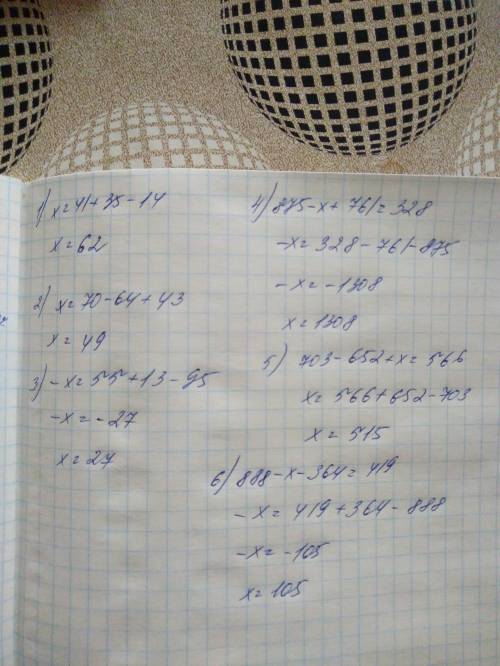 1) x=41+35-14
x=62
2) x=70-64+43
x=49
3) -x=55+13-95
-x=-27
x=27
4) 875-x+761=328
-x=328-761-875
-x=-1308
x=1308
5) 703-652+x=566
x=566+652-703
x=515
6) 888-x-364=419
-x=419+364-888
-x=-105
x=105